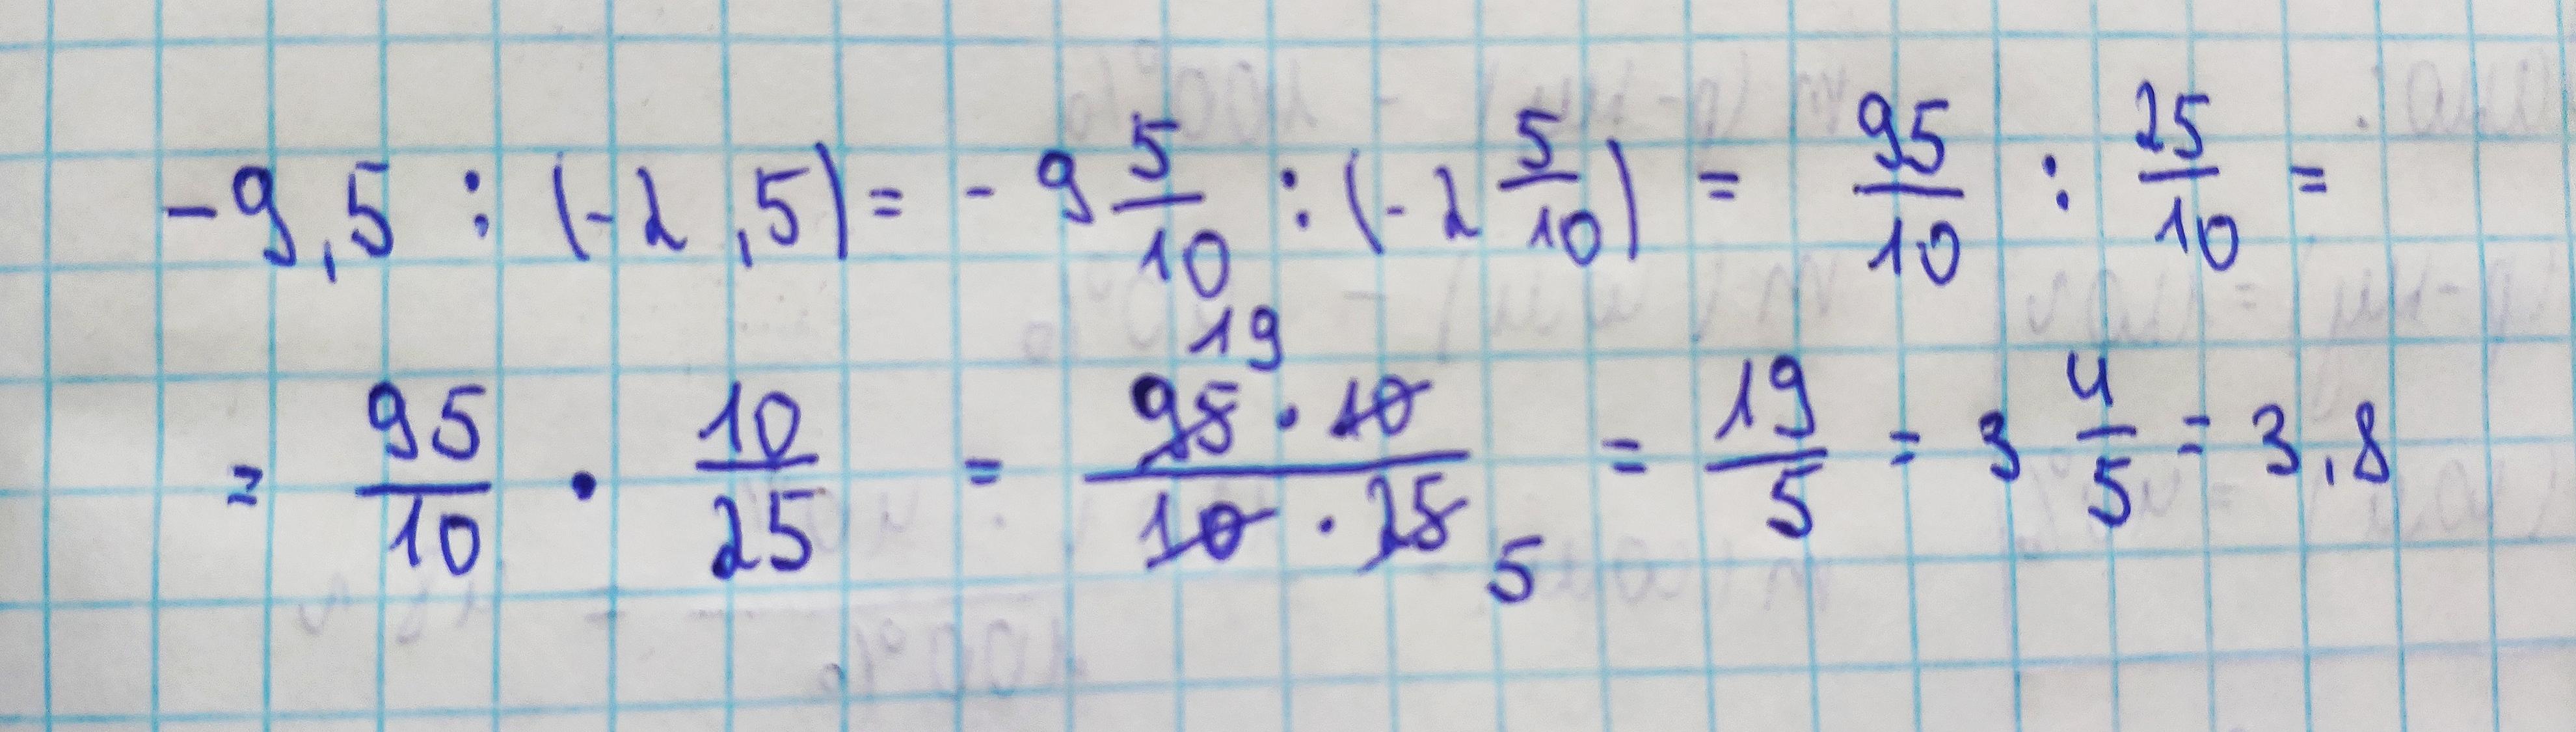 -9,5 : (-2,5) = -9 5/10 : (-2 5/10) = 95/10 : 25/10 =
= 95/10 · 10/25 = 19 95 · 10 / 10 · 25 5 = 19/5 = 3 4/5 = 3,8